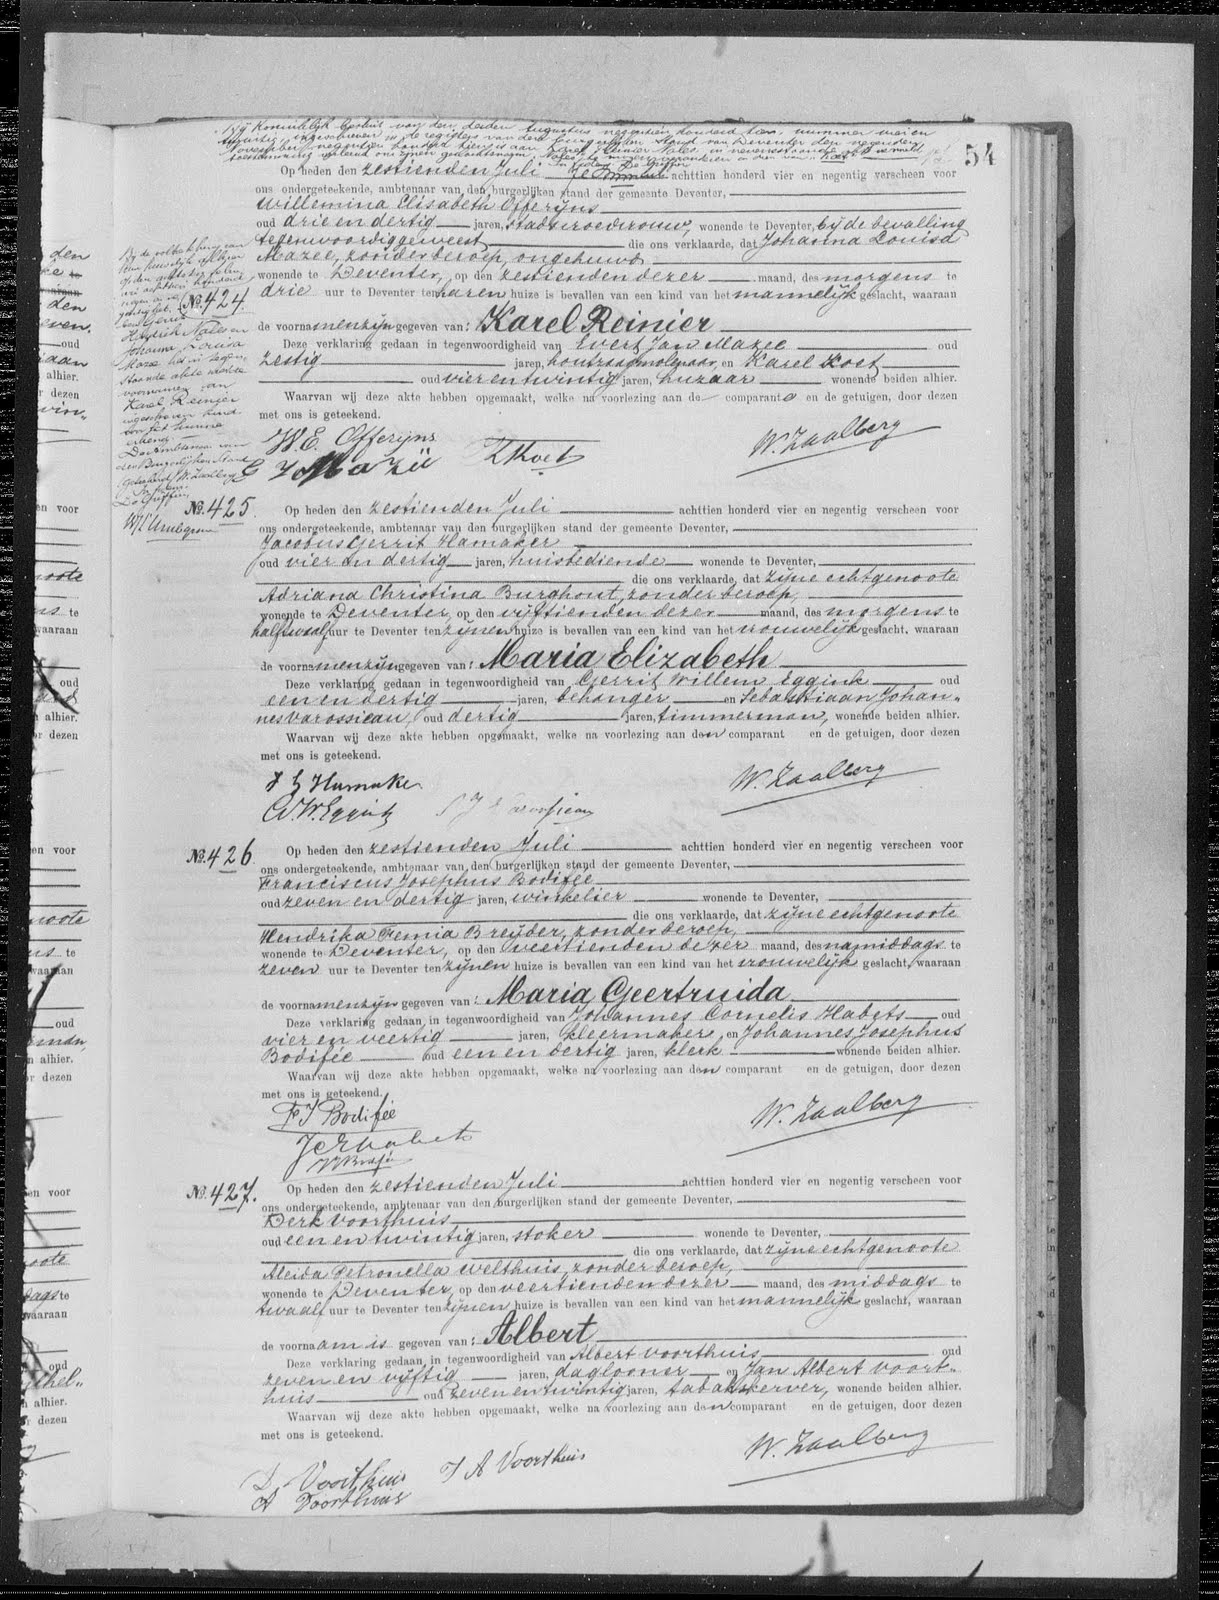 Bij Koninklijk besluit van den derden Augustus negentien honderd tien, nummer
ingeschreven in de registers van den burgerlijken stand van Deventer den negenden
November negentien honderd tien is aan Karel Reinier Nales, in nevensstaande akte vermeld
toestemming verleend om zijnen geslachtsnaam Nales te mogen veranderen in dien van
54
Op heden den zestienden Juli achttien honderd vier en negentig verscheen voor
ons ondergeteekende, ambtenaar van den burgerlijken stand der gemeente Deventer,
Willemina Elisabeth Offerijns
oud drie en dertig jaren, stadsvroedvrouw, wonende te Deventer, bij de bevalling
tegenwoordig geweest die ons verklaarde, dat Johanna Louisa
Mazee, zonder beroep, ongehuwd
wonende te Deventer, op den zestienden dezer maand, des morgens te
drie uur te Deventer ten haren huize is bevallen van een kind van het mannelijk geslacht, waaraan
No. 424.
de voornamen zijn gegeven van: Karel Reinier
Deze verklaring gedaan in tegenwoordigheid van Evert Jan Mazee oud
zestig jaren, houtzaagmolenaar, en Karel Kost
oud vier en twintig jaren, huzaar wonende beiden alhier.
Waarvan wij deze akte hebben opgemaakt, welke na voorlezing aan de comparante en de getuigen, door dezen
met ons is geteekend.
Bij de voltrekking van
het huwelijk
Hendrik Nales en
Johanna Louisa
Mazee het in tegen-
staande akte onder de
voornamen van
Karel Reinier
ingeschreven kind
als het hunne
erkend
De Ambtenaar van
den Burgerlijken Stand
(geteekend) W. Zaalberg
De Griffier,
W. E. Offerijns
E J Mazee
K Kost
W. Zaalberg
No. 425.
Op heden den zestienden Juli achttien honderd vier en negentig verscheen voor
ons ondergeteekende, ambtenaar van den burgerlijken stand der gemeente Deventer,
Jacobus Gerrit Hamaker
oud vier en dertig jaren, huisbediende wonende te Deventer,
die ons verklaarde, dat zijne echtgenoote
Adriana Christina Burghout, zonder beroep,
wonende te Deventer, op den vijftienden dezer maand, des morgens te
half twaalf uur te Deventer ten zijnen huize is bevallen van een kind van het vrouwelijk geslacht, waaraan
de voornamen zijn gegeven van: Maria Elizabeth
Deze verklaring gedaan in tegenwoordigheid van Gerrit Willem Eggink oud
een en dertig jaren, behanger en Sebastiaan Johan-
nes Varossieau, oud dertig jaren, timmerman, wonende beiden alhier.
Waarvan wij deze akte hebben opgemaakt, welke na voorlezing aan den comparant en de getuigen, door dezen
met ons is geteekend.
J G Hamaker
G. W. Eggink
S J Varossieau
W. Zaalberg
No. 426
Op heden den zestienden Juli achttien honderd vier en negentig verscheen voor
ons ondergeteekende, ambtenaar van den burgerlijken stand der gemeente Deventer,
Franciscus Josephus Bodifée
oud zeven en dertig jaren, winkelier wonende te Deventer,
die ons verklaarde, dat zijne echtgenoote
Hendrika Femia Breijder, zonder beroep,
wonende te Deventer, op den veertienden dezer maand, des namiddags te
zeven uur te Deventer ten zijnen huize is bevallen van een kind van het vrouwelijk geslacht, waaraan
de voornamen zijn gegeven van: Maria Geertruida
Deze verklaring gedaan in tegenwoordigheid van Johannes Cornelis Habets oud
vier en veertig jaren, kleermaker, en Johannes Josephus
Bodifée oud een en dertig jaren, klerk wonende beiden alhier.
Waarvan wij deze akte hebben opgemaakt, welke na voorlezing aan den comparant en de getuigen, door dezen
met ons is geteekend.
F J Bodifée
J C Habets
J J Bodifée
W. Zaalberg
No. 427.
Op heden den zestienden Juli achttien honderd vier en negentig verscheen voor
ons ondergeteekende, ambtenaar van den burgerlijken stand der gemeente Deventer,
Derk Voorthuis
oud een en twintig jaren, stoker wonende te Deventer,
die ons verklaarde, dat zijne echtgenoote
Aleida Petronella Welthuis, zonder beroep,
wonende te Deventer, op den veertienden dezer maand, des middags te
twaalf uur te Deventer ten zijnen huize is bevallen van een kind van het mannelijk geslacht, waaraan
de voornaam is gegeven van: Albert
Deze verklaring gedaan in tegenwoordigheid van Albert Voorthuis oud
zeven en vijftig jaren, daglooner en Jan Albert Voort-
huis oud zeven en twintig jaren, tabakskerver, wonende beiden alhier.
Waarvan wij deze akte hebben opgemaakt, welke na voorlezing aan den comparant en de getuigen, door dezen
met ons is geteekend.
D. Voorthuis
A Voorthuis
J A Voorthuis
W. Zaalberg